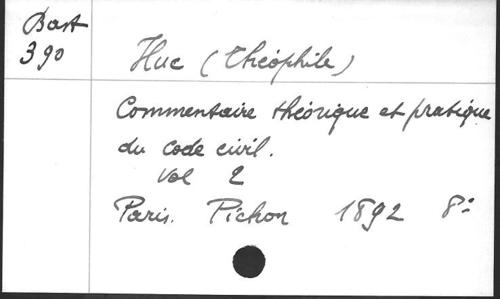 Bast
390
Huc (Théophile)
Commentaire théorique et pratique
du code civil.
Vol 2
Paris. Pichon 1892 8°